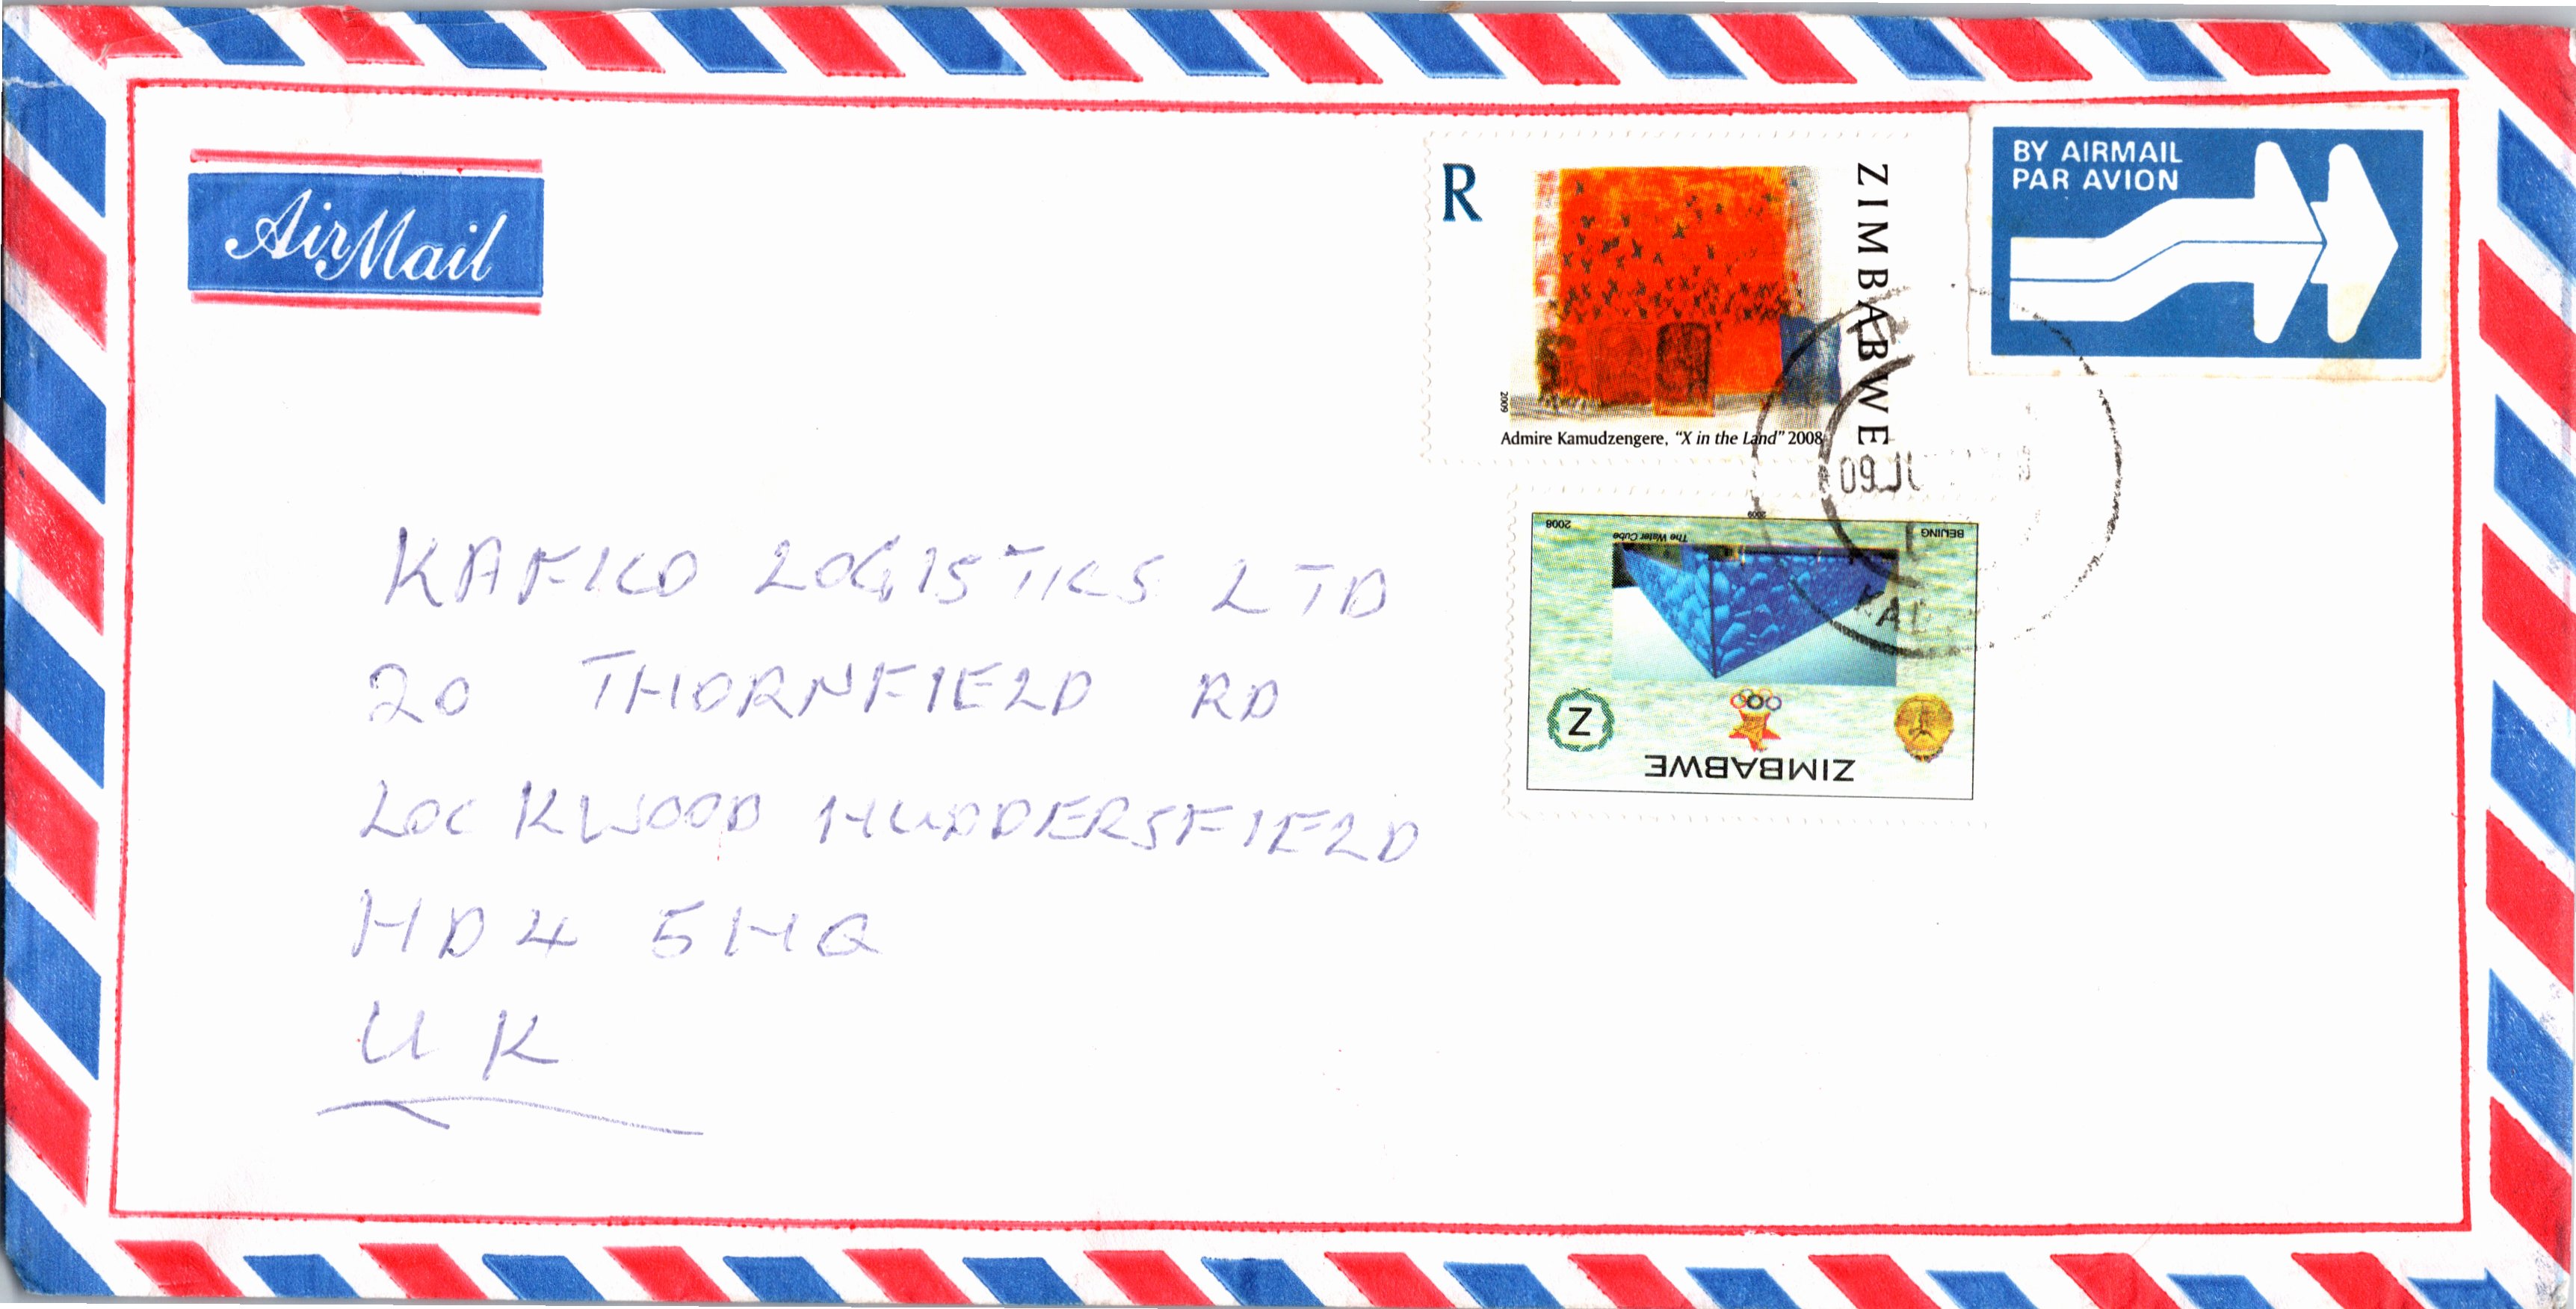 Air Mail
R
ZIMBABWE
2009
Admire Kamudzengere, “X in the Land” 2008
BY AIRMAIL
PAR AVION
09
BEIJING
2009
2008
The Water Cube
Z
ZIMBABWE
KAFIKO LOGISTICS LTD
20 THORNFIELD RD
LOCKWOOD HUDDERSFIELD
HD4 5HQ
UK